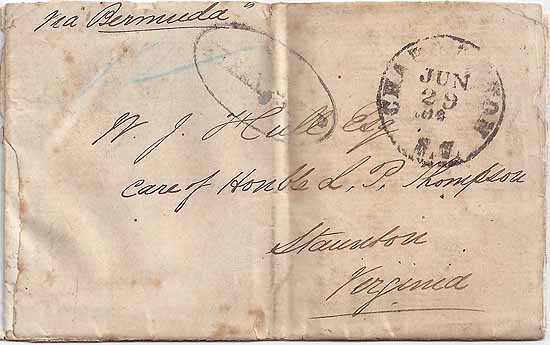 via Bermuda"
CHARLESTON
JUN
29
W. J. Hull Esq
care of Honble L. P. Thompson
Staunton
Virginia